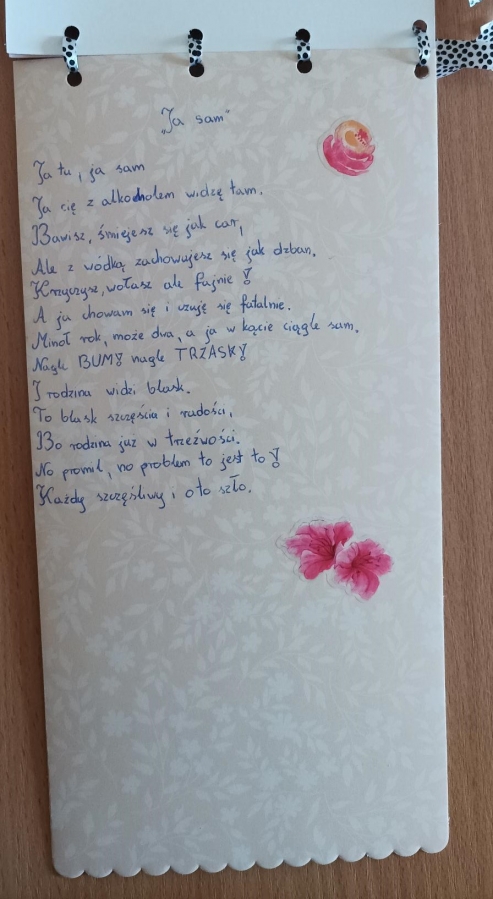 „Ja sam"
Ja tu, ja sam
Ja cię z alkocholem widzę tam.
Bawisz, śmiejesz się jak car,
Ale z wódką zachowujesz się jak dzban.
Krzyczysz, wołasz ale fajnie!
A ja chowam się i czuję się fatalnie.
Minoł rok, może dwa, a ja w kącie ciągle sam.
Nagle BUM! nagle TRZASK!
I rodzina widzi blask.
To blask szczęścia i radości,
Bo rodzina już w trzeźwości.
No promil, no problem to jest to!
Każdy szczęśliwy i oto szło.